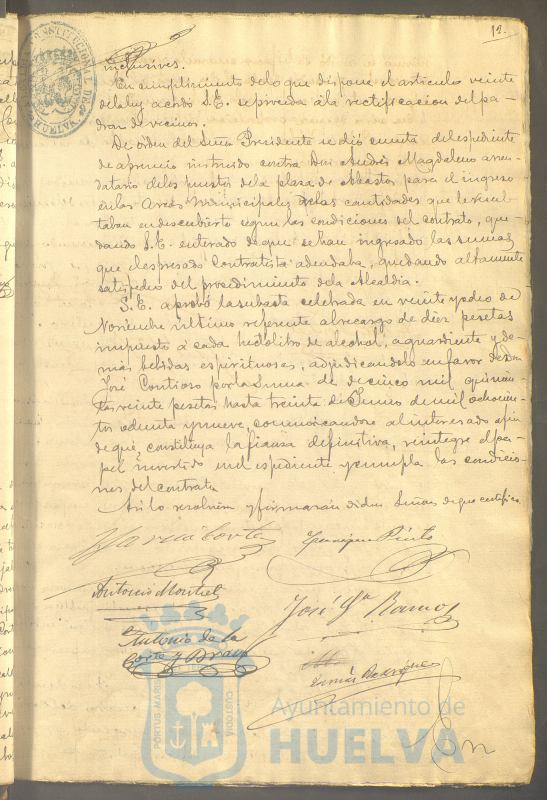 12.
inclusives.
En cumplimiento de lo que dispone el artículo veinte
de la ley acordó S.E. se proceda á la rectificacion del pa-
dron de vecinos.
De órden del Señor Presidente se dió cuenta del espediente
de apremio instruido contra Don Andrés Magdaleno arren-
datario de los puestos de la plaza de Abastos para el ingreso
en las Arcas Municipales de las cantidades que le resul-
taban en descubierto segun las condiciones del contrato, que-
dando S.E. enterado de que se han ingresado las sumas
que el espresado Contratista adeudaba, quedando altamente
satisfecho del procedimiento de la Alcaldía.
S.E. aprobó la subasta celebrada en veinte y dos de
Noviembre último referente al recargo de diez pesetas
impuesto á cada hectólitro de alcohol, aguardiente y de-
más bebidas espirituosas, adjudicandolo en favor de Don
José Contioso por la suma de cinco mil quinien-
tas veinte pesetas hasta treinta de Junio de mil ochocien-
tos ochenta y nueve, comunicandose al interesado á fin
de que constituya la fianza definitiva, reintegre el pa-
pel invertido en el espediente y cumpla las condicio-
nes del contrato.
Así lo resolvieron y firmarán dichos Señores de que certifico.
Garcia Cortés
Enrique Pinto
Antonio Montiel
José Gª Ramos
Antonio de la
Corte y Bravo
Tomás
CONSTITUCIONAL DE HUELVA
PORTUS MARIS
CUSTODIA
Ayuntamiento de
HUELVA